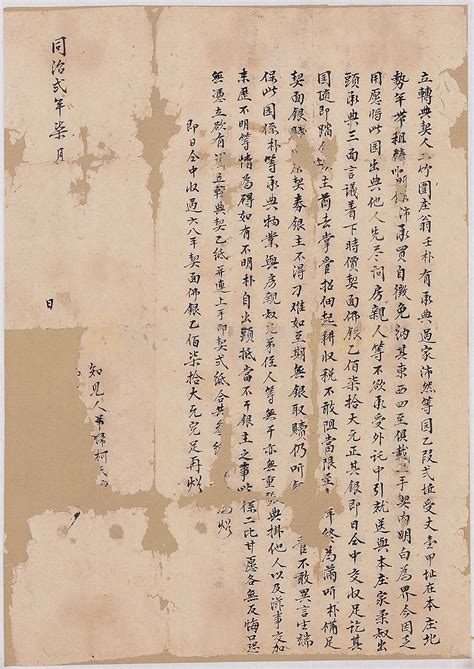 立轉典契人二竹圍庄翁壬朴有承典過家沛然等田乙段弍坵受丈壹甲址在本庄北
勢年带租係沛承買自徵免納其東西四至俱載上手契内明白為界今因乏
用愿將此田出典他人先尽问房親人等不欲承受外託中引就送與本庄家柔叔出
頭承典三面言議着下時價契面佛銀乙佰柒拾大元正其銀即日仝中交收足訖其
田隨即踏主前去掌管招佃起耕收税不敢阻當限至年終為滿听朴備足
契面銀契券銀主不得刁难如至期無銀取贖仍听管不敢異言生端
保此田係朴等承典物業與房親叔兄弟侄人等無干亦無重張典掛他人以及事交加
來歷不明等情為碍如有不明朴自出頭抵當不干銀主之事此係二比甘愿各無反悔口恐
無憑立欲有立轉典契乙紙并連上手印契弍紙合共炤
即日仝中收過六八平契面佛銀乙佰柒拾大元完足再炤
知見人弟婦柯氏
日
同治弍年柒月